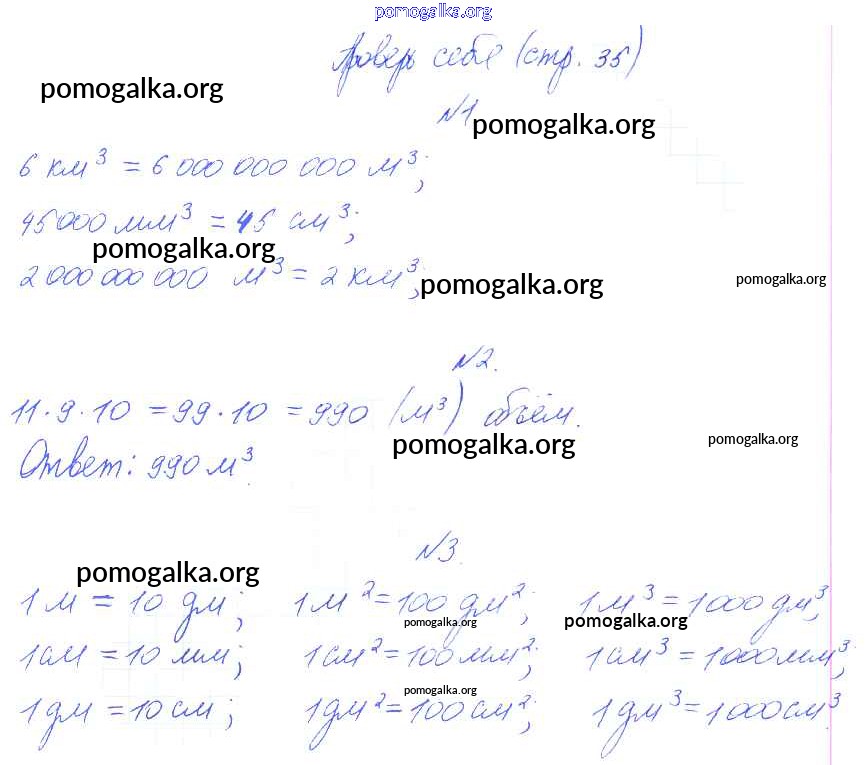 pomogalka.org
Проверь себя (стр. 35)
pomogalka.org
№1 pomogalka.org
6 км³ = 6 000 000 000 м³;
45000 мм³ = 45 см³;
pomogalka.org
2 000 000 000 м³ = 2 км³; pomogalka.org pomogalka.org
№2.
11·9·10 = 99·10 = 990 (м³) объём.
pomogalka.org pomogalka.org
Ответ: 990 м³.
№3.
pomogalka.org
1 м = 10 дм; 1 м² = 100 дм²; 1 м³ = 1000 дм³;
pomogalka.org pomogalka.org
1 см = 10 мм; 1 см² = 100 мм²; 1 см³ = 1000 мм³;
pomogalka.org
1 дм = 10 см; 1 дм² = 100 см²; 1 дм³ = 1000 см³.